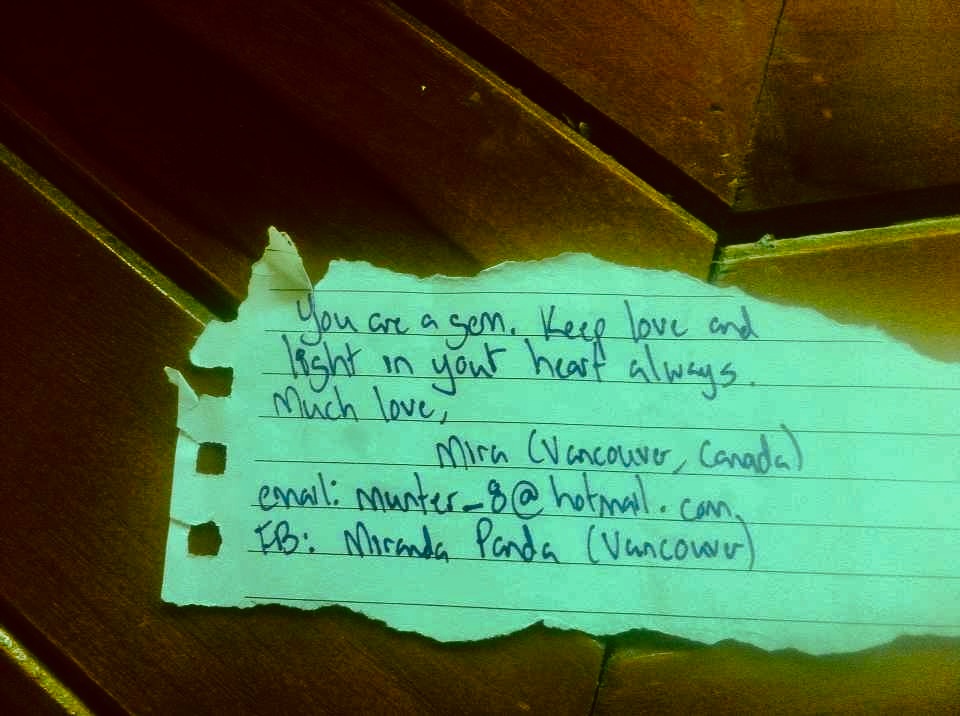 You are a gem. Keep love and
light in your heart always.
Much love,
Mira (Vancouver, Canada)
email: munter_8@hotmail.com
FB: Miranda Panda (Vancouver)